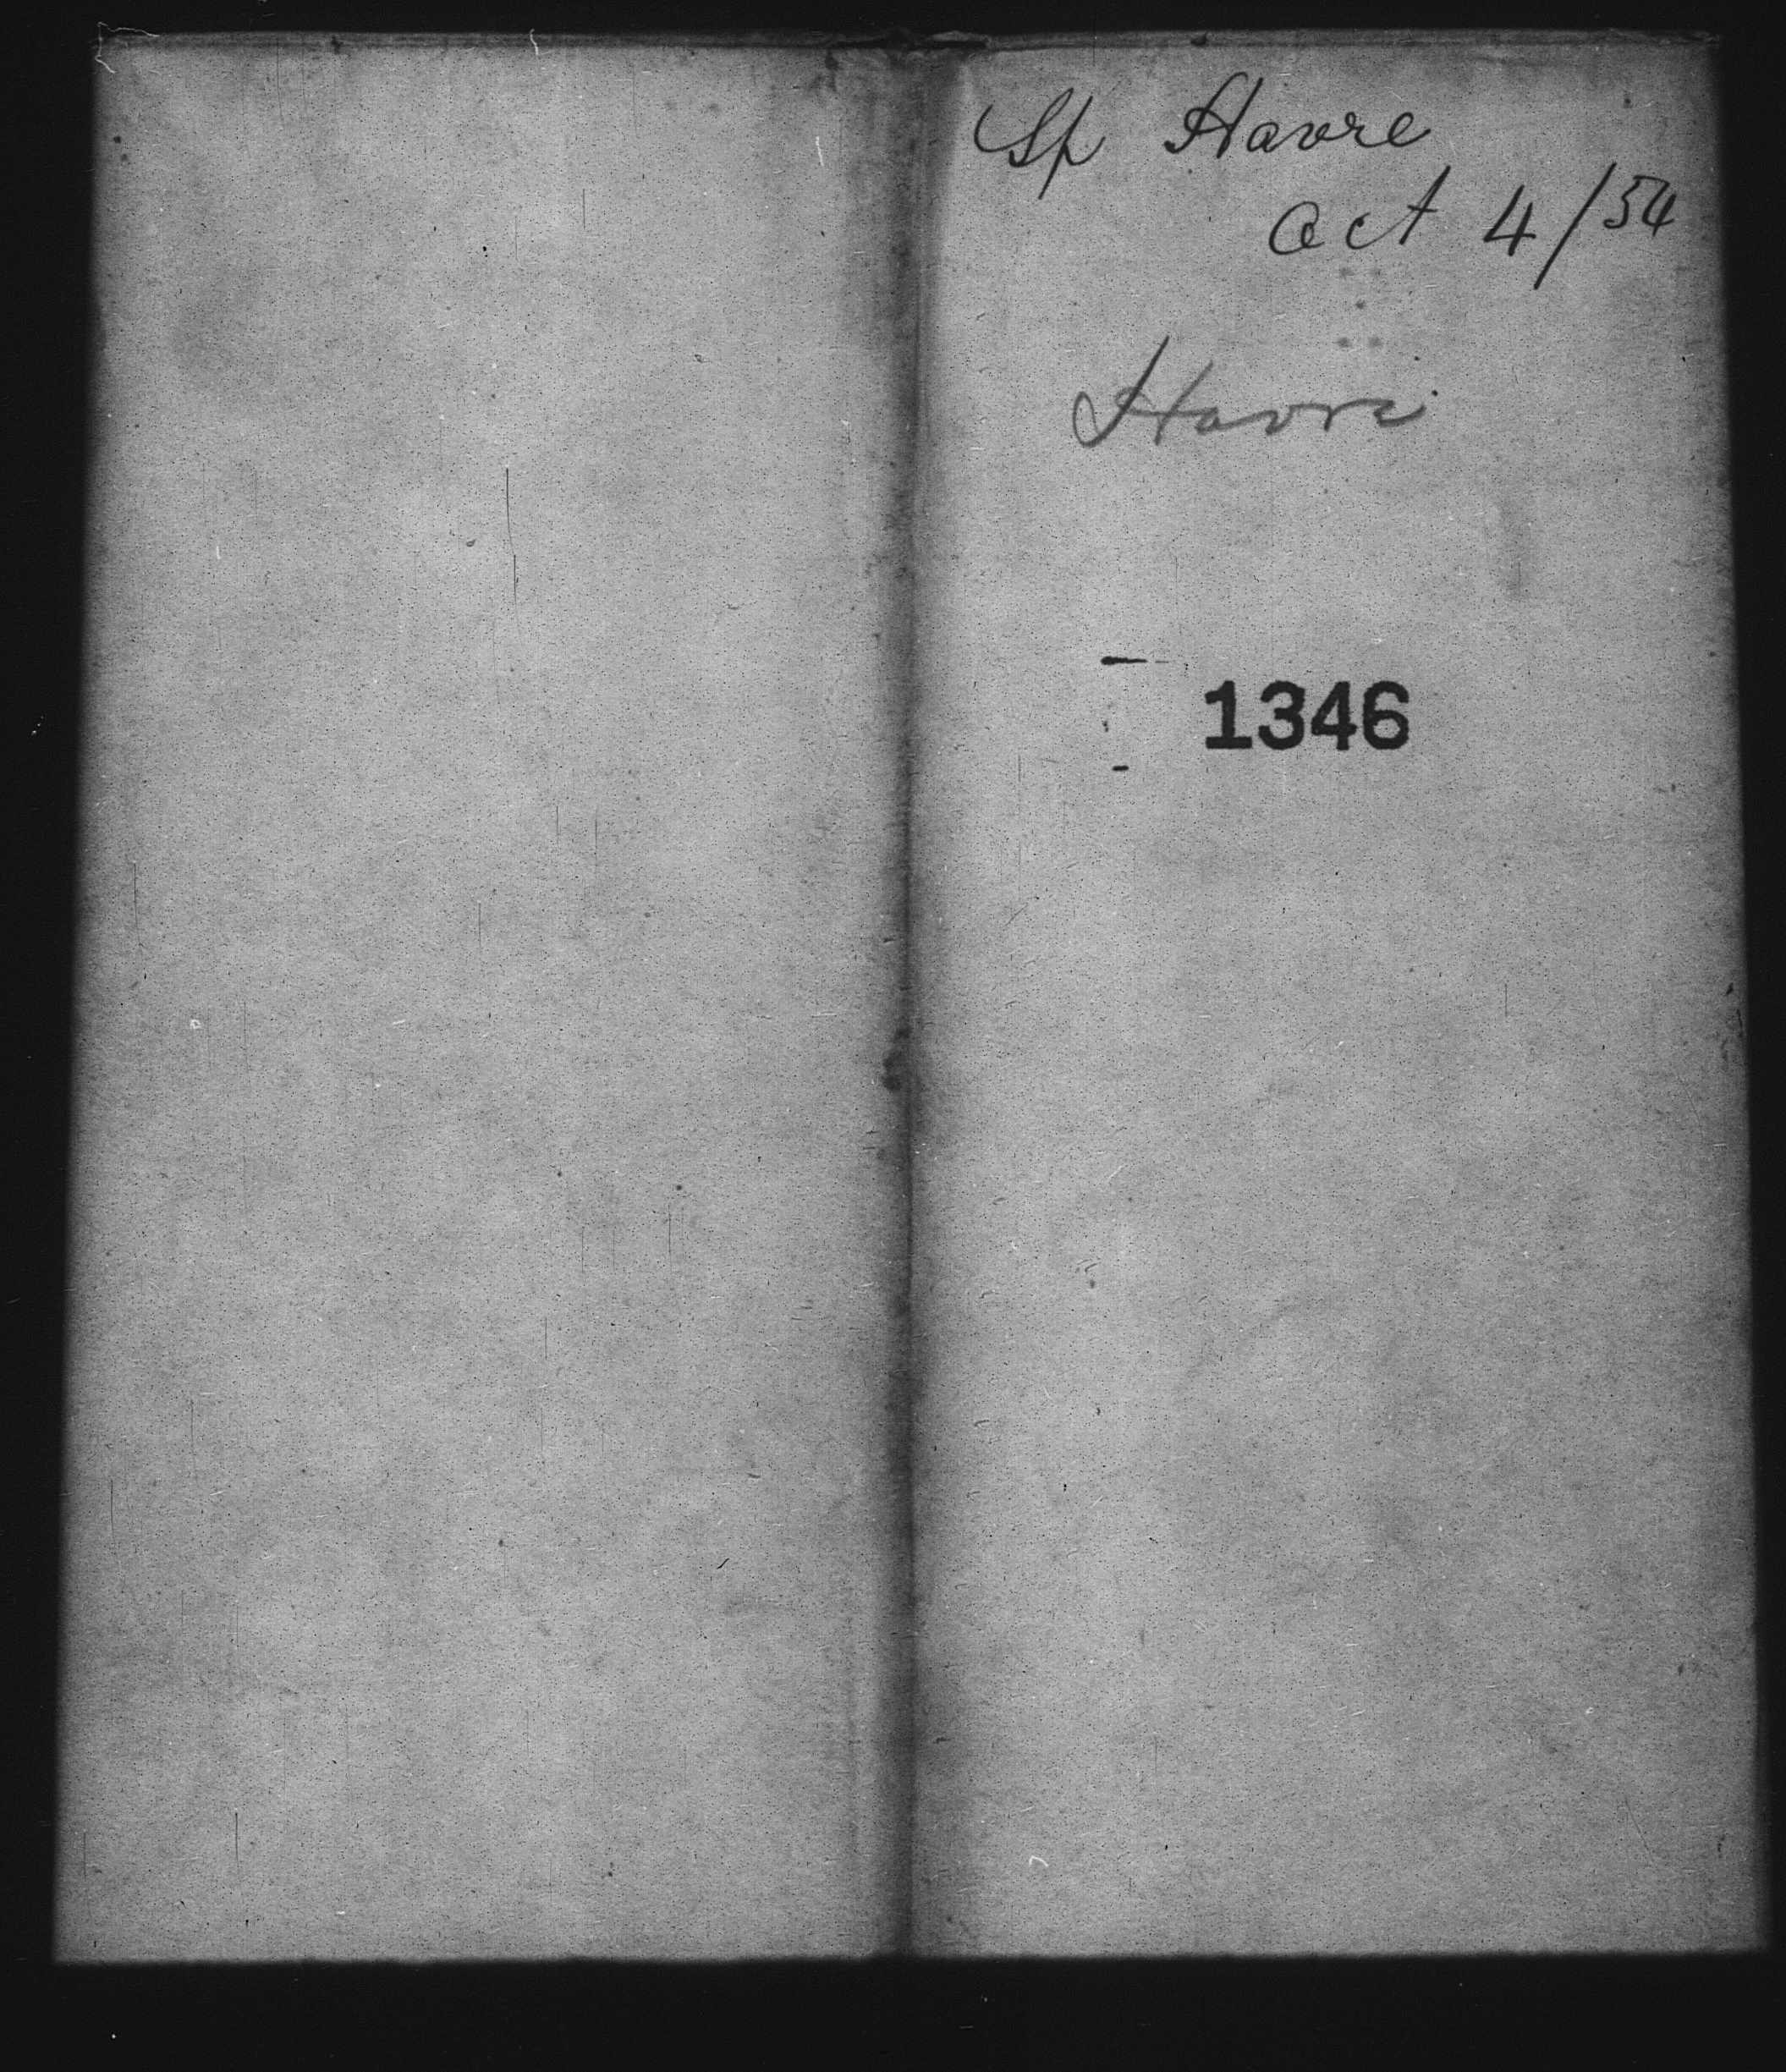 Sp Havre
Oct 4/54
Havre
1346